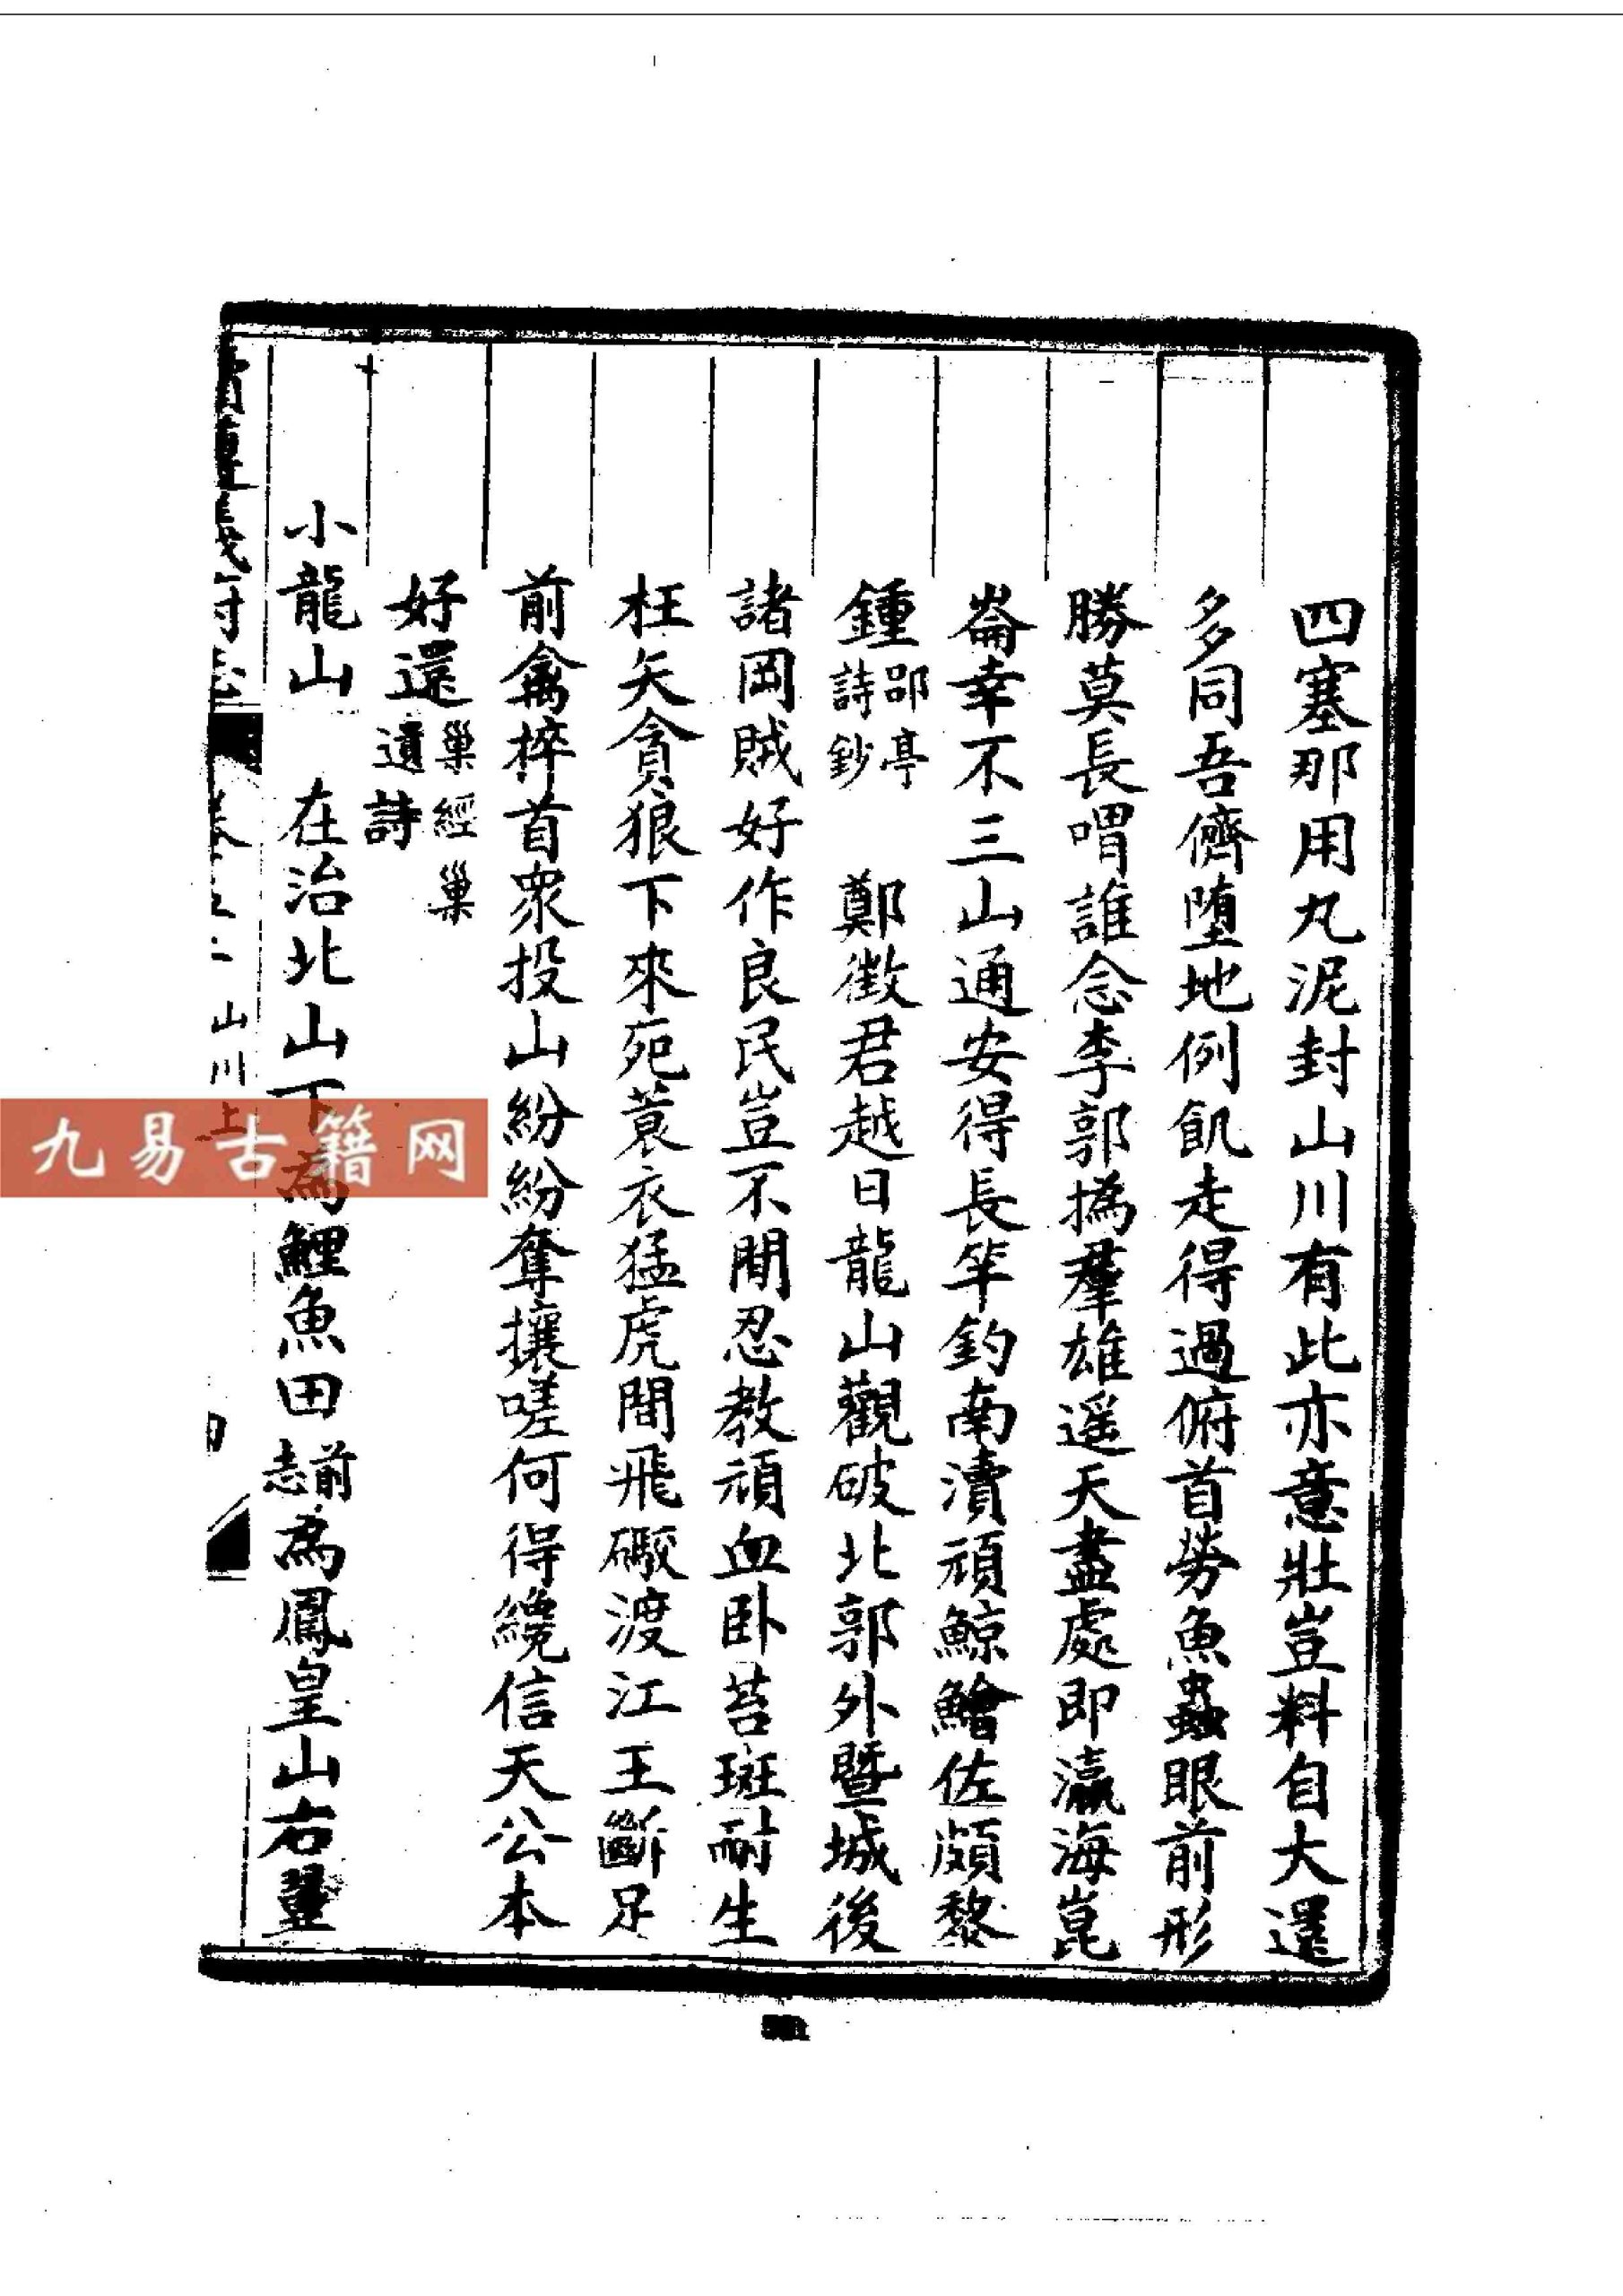 四塞那用丸泥封山川有此亦意壯豈料自大還
多同吾儕墮地例飢走得過俯首勞魚蟲眼前形
勝莫長喟誰念李郭撝羣雄遥天盡處即瀛海崑
崙幸不三山通安得長竿釣南瀆頑鯨鱠佐頗黎
鍾邵亭詩鈔 鄭徵君越日龍山觀破北郭外暨城後
諸岡賊好作良民豈不閒忍教頑血卧苔斑耐生
枉矢貪狼下來宛蓑衣猛虎閒飛礮渡江王斷足
前禽捽首衆投山紛紛奪攘嗟何得纔信天公本
好還巢經巢遺詩
小龍山 在治北山下為鯉魚田前志為鳳皇山右
山川上
九易古籍网